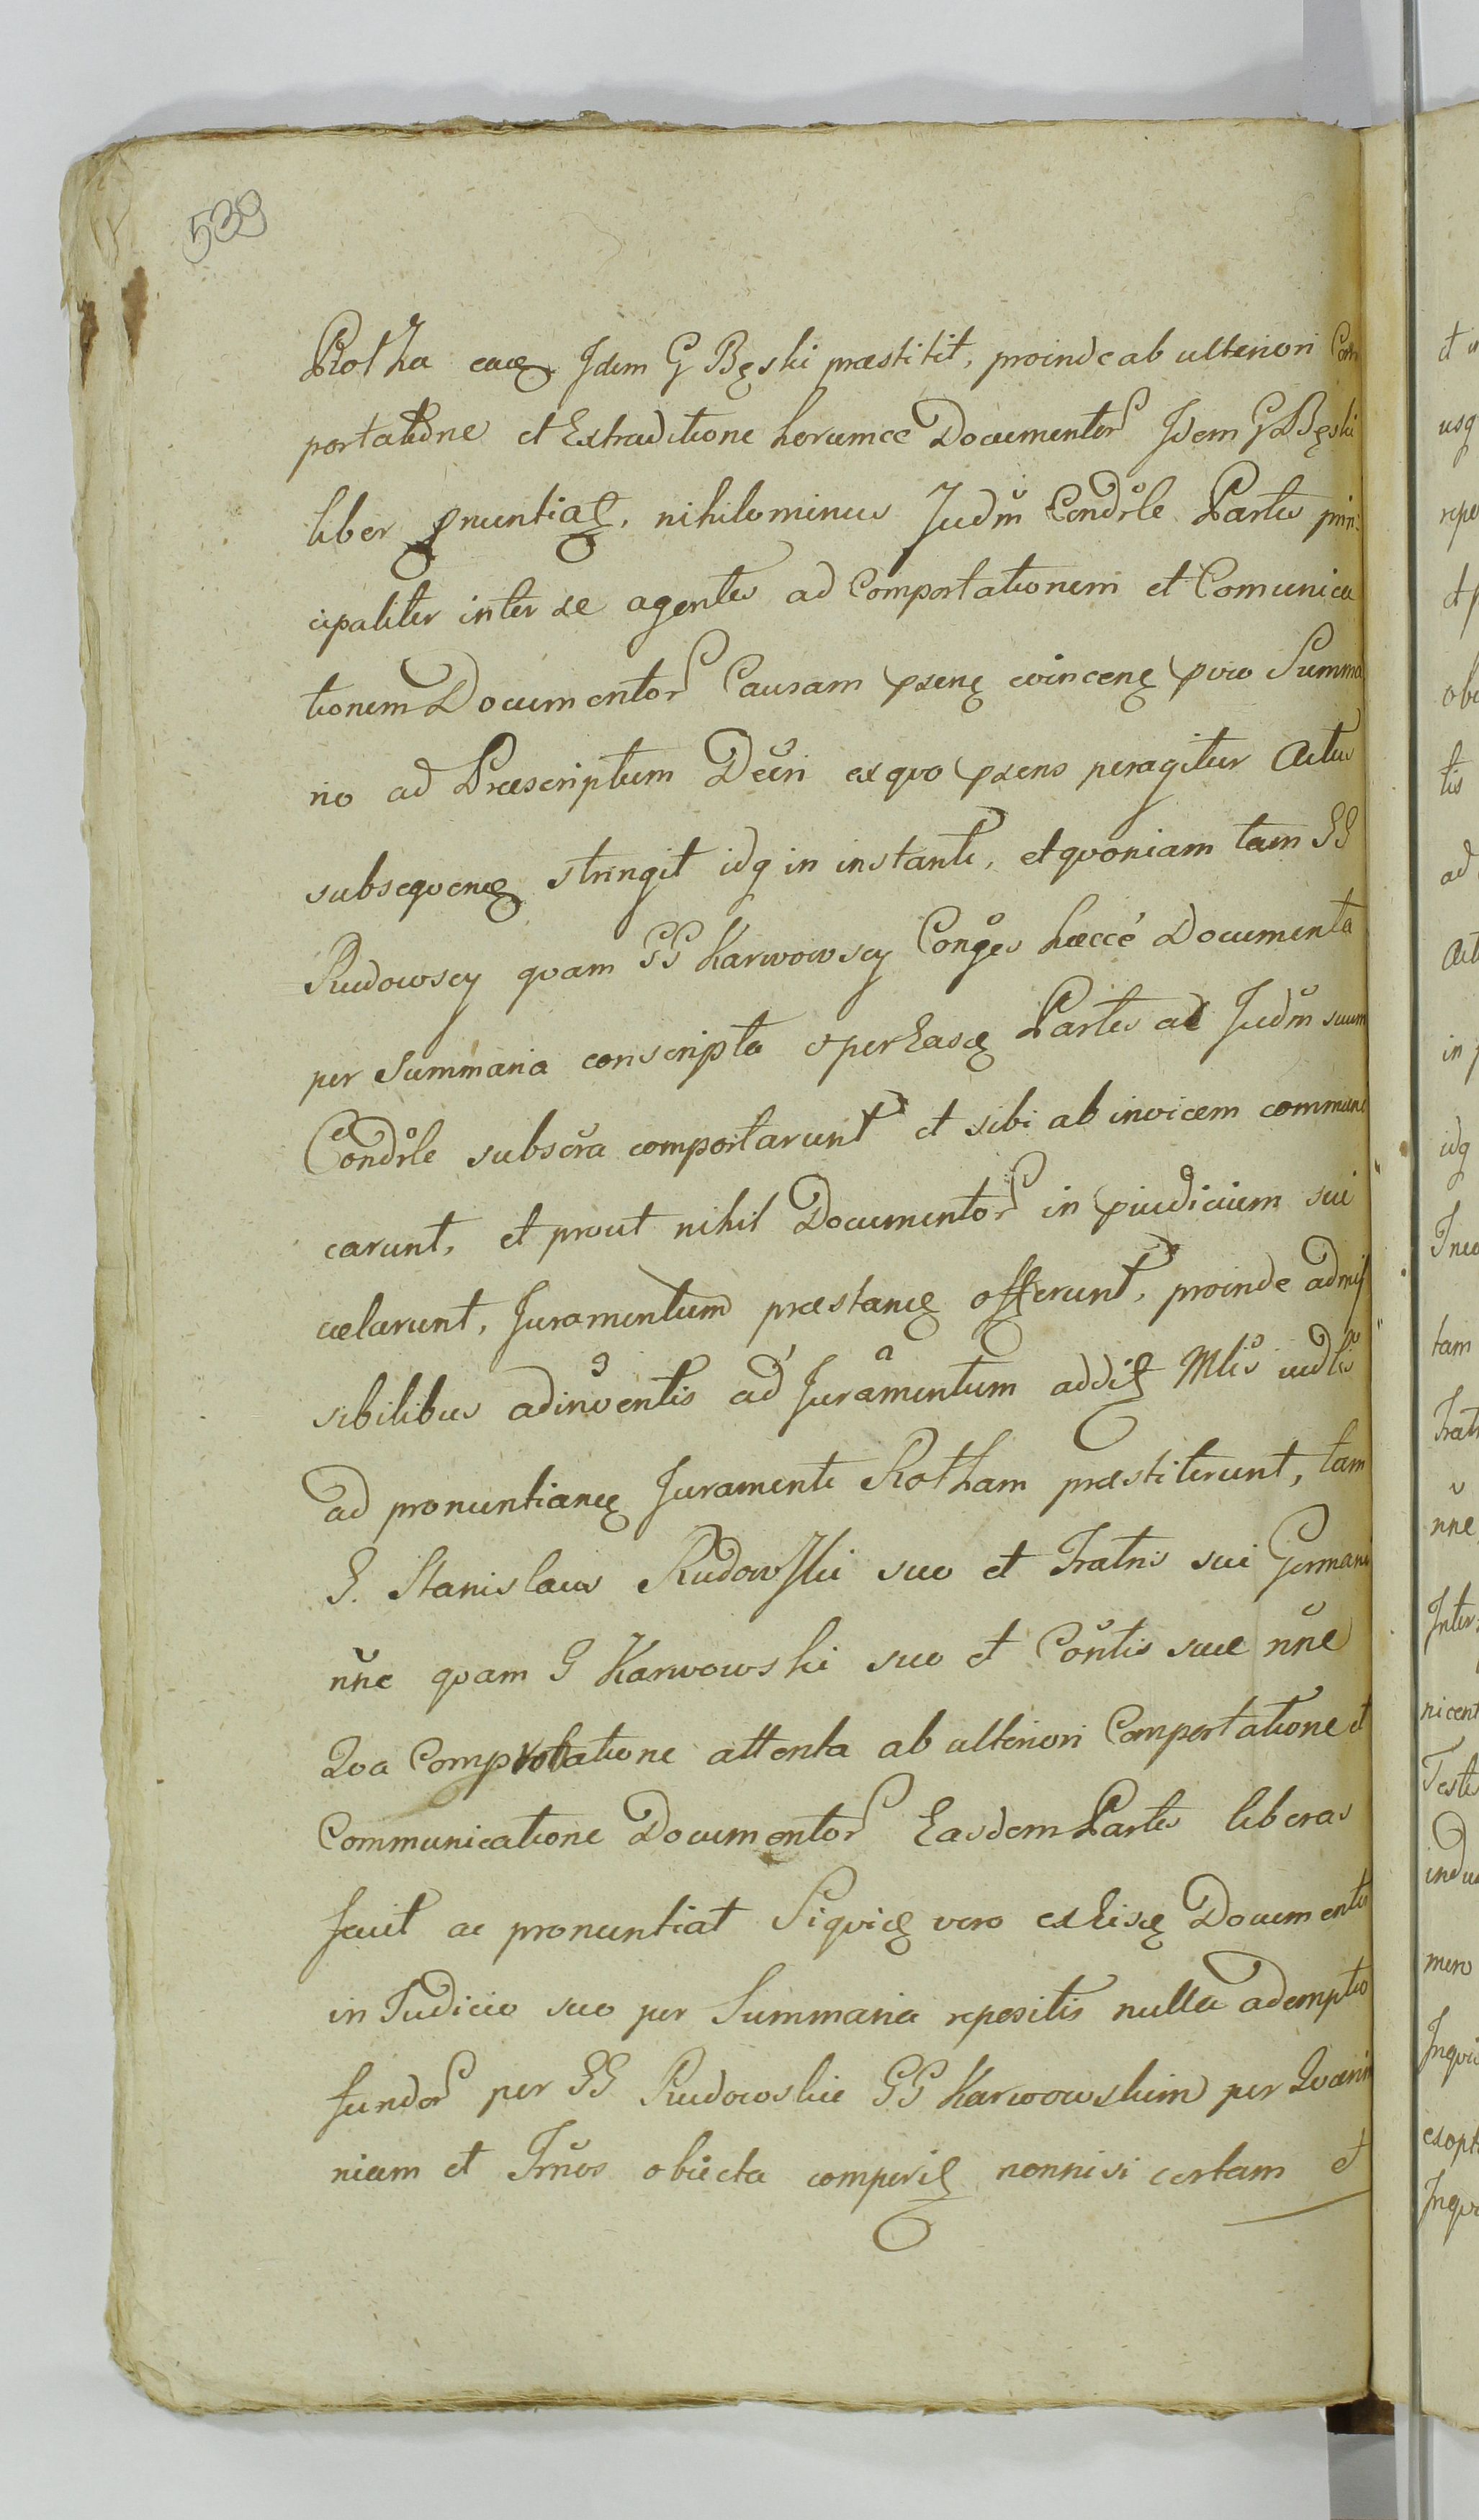 539
Rotha eaq Idem G Bęski præstitit, proinde ab ulteriori Com
portatione et Extraditione horumce Documentor Idem G Bęski
liber pnuntiaţ, nihilominus Judm Condrle Partes prin
cipaliter inter se agentes ad Comportationem et Comunica
tionem Documentor Causam psenę evincenę pvio Summa
rio ad Præscriptum Decri ex quo psens peragitur Actus
subsequenę stringit idq in instanti, et quoniam tam GG
Rudowscy quam GG Karwowscy Conges hæccé Documenta
per Summaria conscripta per Easę Partes ad Judm suum
Condrle subscra comportarunt et sibi ab invicem communi
carunt, et prout nihil Documentor in pjudicium sui
celarunt, Juramentum præstanę offerunt, proinde admis
sibilibus adinventis ad Juramentum addiţ Mlis judlis
ad pronuntianę Juramenti Rotham præstiterunt, tam
G. Stanislaus Rudowski suo et Fratris sui Germani
nne quam G Karwowski suo et Contis suæ nne
Qva Comprobatione attenta ab ulteriori Comportatione et
Communicatione Documentor Easdem Partes liberas
facit ac pronuntiat Siquię vero ex hisę Documentis
in Judicio suo per Summaria repositis nulla ademptio
fundor per GG Rudowskie GG Karwowskim per Qværi
niam et Trnos obiecta comperiţ nonnisi certam et